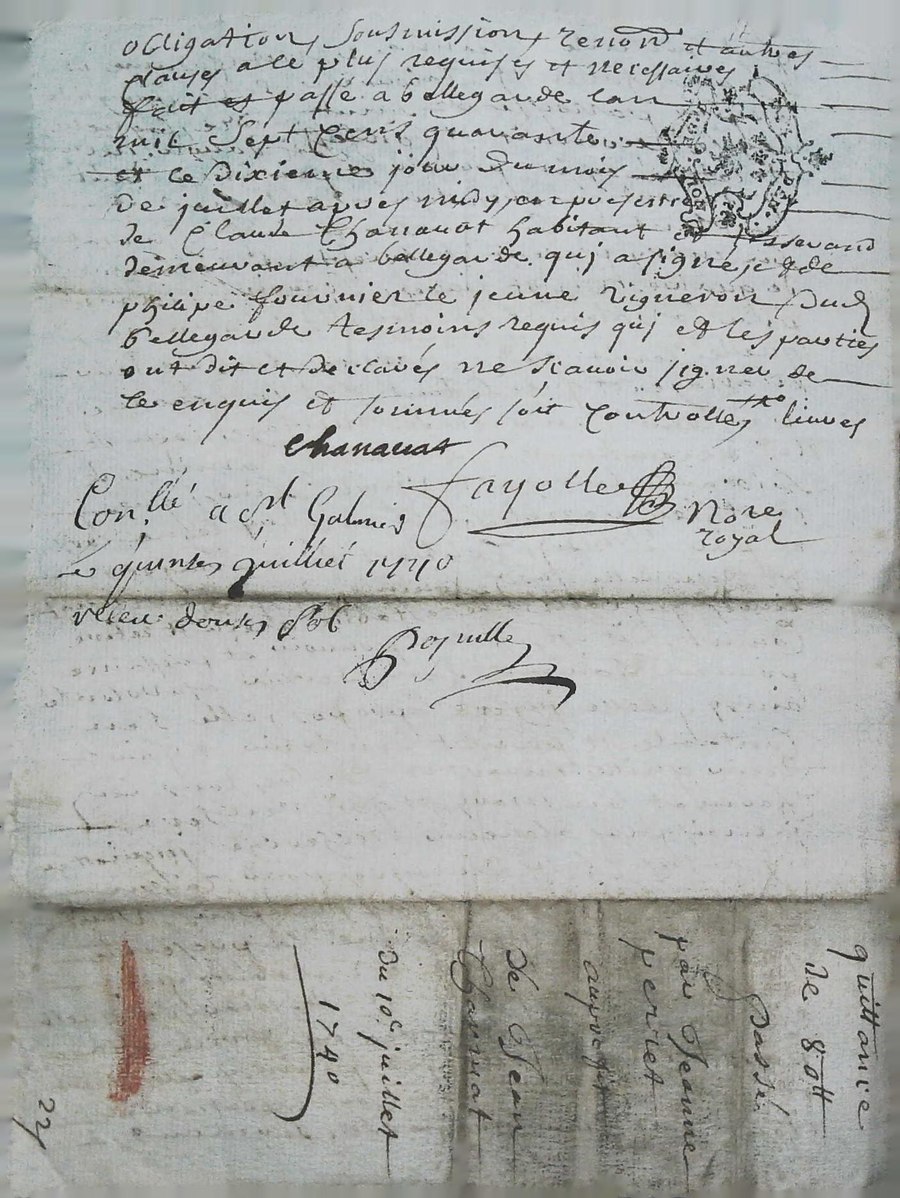 obligations soumission renond et autres
clauses a ce plus requises et necessaires
fait et passé a bellegarde lan
mil Sept Cens quarante
et le Dixieme jour du mois
de juillet apres midy en presence
de Claude Chanauat habitant tisserand
demeurant a bellegarde quj a signé et de
philipe fournier le jeune vigneron dud
bellegarde tesmoins requis quj et les parties
ont dit et declarés ne scauoir signer de
ce enquis et sommés soit Controllé liures
Chanauat
Fayolle Nore
royal
Con.llé a St Galmier
Le quinze juillet 1740
receu douze sols
quittance
de 80ll
passé
par Jeanne
perret
au profit
de Jean
Chanuat
du 10e juillet
1740